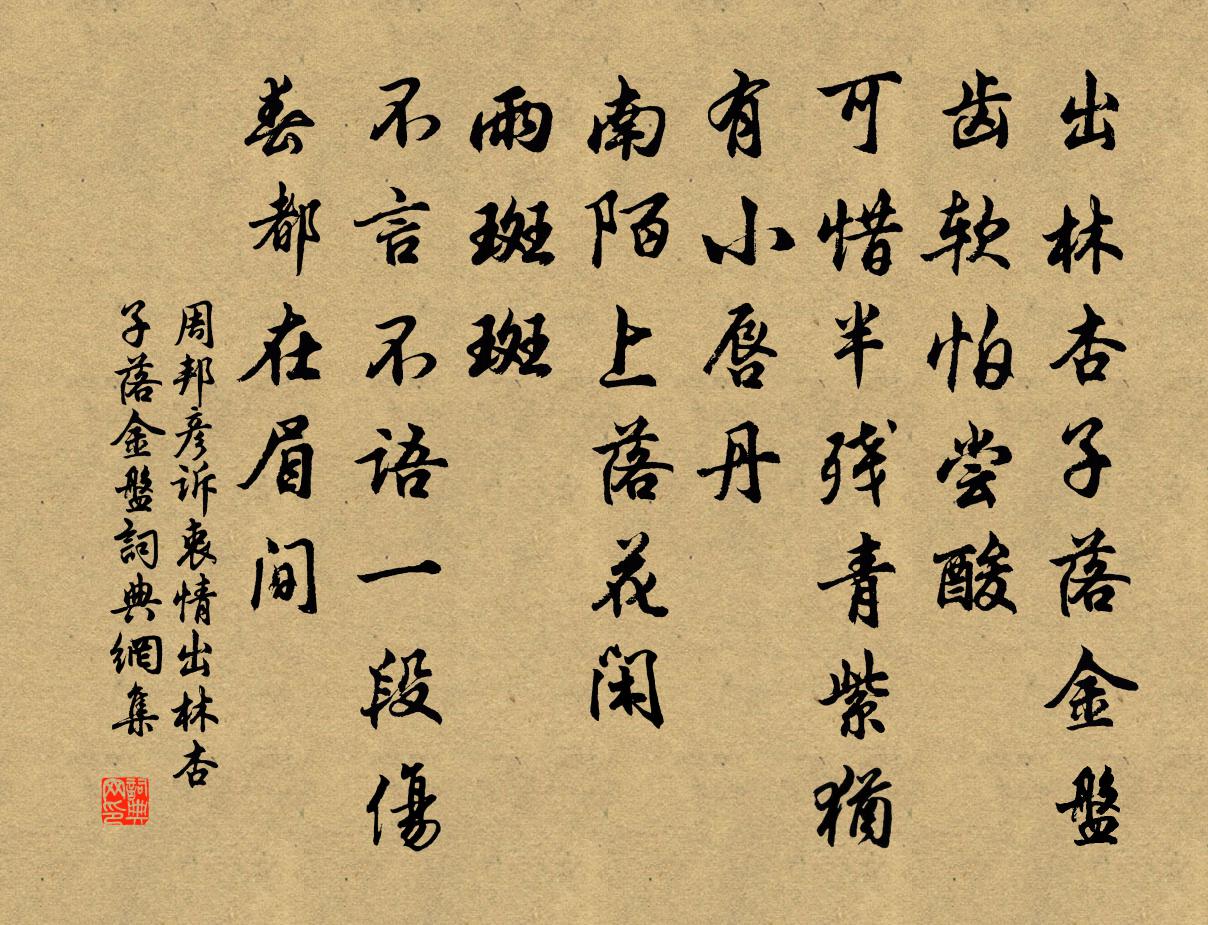 出林杏子落金盤
齿软怕尝酸
可惜半残青紫猶
有小唇丹
南陌上落花闲
雨斑斑
不言不语一段傷
春都在眉间
周邦彦诉衷情出林杏
子落金盤詞典網集
詞典网印